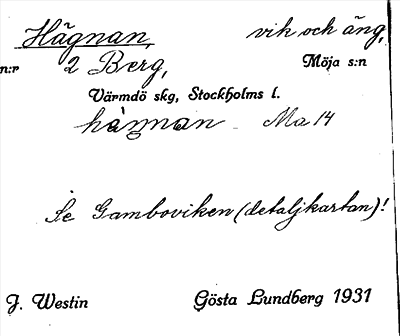 Hägnan, vik och äng,
n:r 2 Berg, Möja s:n
Värmdö skg, Stockholms l.
hàŋnan Ma 14
Se Gamboviken (detaljkartan)!
J. Westin Gösta Lundberg 1931